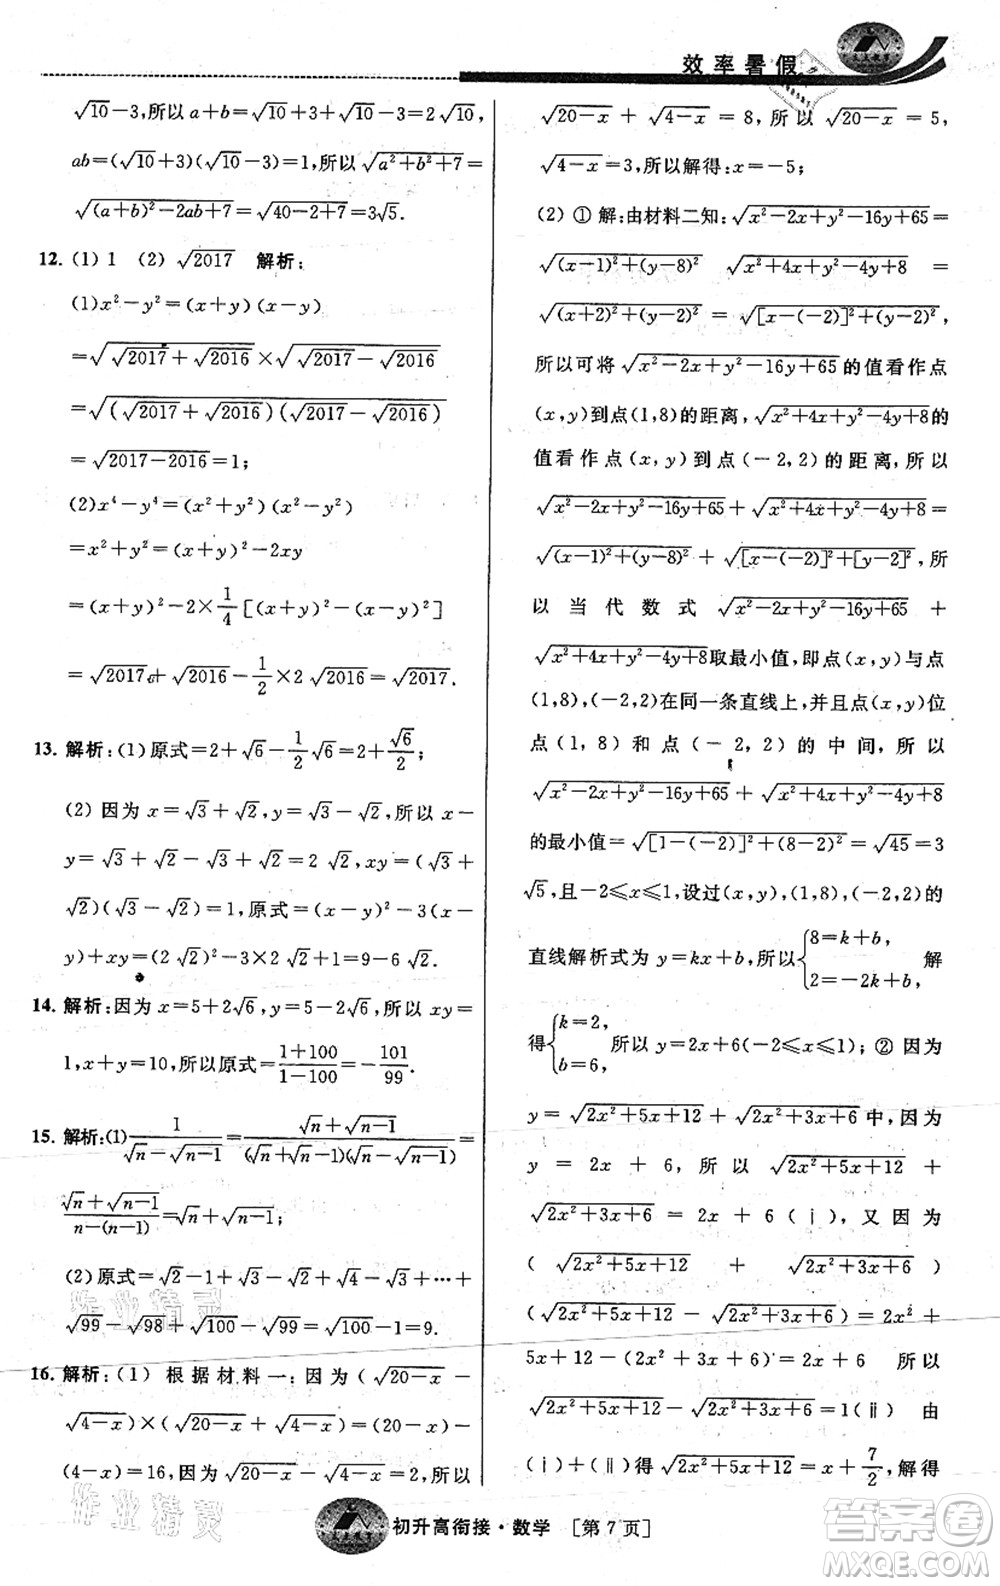 效率暑假
√10−3,所以 a+b=√10+3+√10−3=2√10,
ab=(√10+3)(√10−3)=1,所以√(a²+b²+7)=
√((a+b)²−2ab+7)=√(40−2+7)=3√5.
12. (1) 1 (2) √2017 解析:
(1)x²−y²=(x+y)(x−y)
=√(√2017+√2016)×√(√2017−√2016)
=√((√2017+√2016)(√2017−√2016))
=√(2017−2016)=1;
(2)x⁴−y⁴=(x²+y²)(x²−y²)
=x²+y²=(x+y)²−2xy
=(x+y)²−2×1/4[(x+y)²−(x−y)²]
=√2017+√2016−1/2×2√2016=√2017.
13. 解析:(1)原式=2+√6−1/2√6=2+√6/2;
(2)因为 x=√3+√2,y=√3−√2,所以 x−
y=√3+√2−√3+√2=2√2,xy=(√3+
√2)(√3−√2)=1,原式=(x−y)²−3(x−
y)+xy=(2√2)²−3×2√2+1=9−6√2.
14. 解析:因为 x=5+2√6,y=5−2√6,所以 xy=
1,x+y=10,所以原式=(1+100)/(1−100)=−101/99.
15. 解析:(1)1/(√n−√(n−1))=(√n+√(n−1))/((√n+√(n−1))(√n−√(n−1)))=
(√n+√(n−1))/(n−(n−1))=√n+√(n−1);
(2)原式=√2−1+√3−√2+√4−√3+…+
√99−√98+√100−√99=√100−1=9.
16. 解析:(1) 根据材料一:因为(√(20−x)−
√(4−x))×(√(20−x)+√(4−x))=(20−x)−
(4−x)=16,因为√(20−x)−√(4−x)=2,所以
√(20−x)+√(4−x)=8,所以√(20−x)=5,
√(4−x)=3,所以解得:x=−5;
(2) ①解:由材料二知:√(x²−2x+y²−16y+65)=
√((x−1)²+(y−8)²) √(x²+4x+y²−4y+8) =
√((x+2)²+(y−2)²) = √([x−(−2)]²+(y−2)²),
所以可将√(x²−2x+y²−16y+65)的值看作点
(x,y)到点(1,8)的距离,√(x²+4x+y²−4y+8)的
值看作点(x,y)到点(−2,2)的距离,所以
√(x²−2x+y²−16y+65)+√(x²+4x+y²−4y+8)=
√((x−1)²+(y−8)²)+√([x−(−2)]²+[y−2]²),所
以当代数式√(x²−2x+y²−16y+65)+
√(x²+4x+y²−4y+8)取最小值,即点(x,y)与点
(1,8),(−2,2)在同一条直线上,并且点(x,y)位
点(1,8)和点(−2,2)的中间,所以
√(x²−2x+y²−16y+65)+√(x²+4x+y²−4y+8)
的最小值=√([1−(−2)]²+(8−2)²)=√45=3
√5,且−2≤x≤1,设过(x,y),(1,8),(−2,2)的
直线解析式为 y=kx+b,所以{8=k+b, 2=−2k+b, 解
得{k=2, b=6, 所以 y=2x+6(−2≤x≤1);②因为
y=√(2x²+5x+12)+√(2x²+3x+6)中,因为
y=2x+6,所以√(2x²+5x+12)+
√(2x²+3x+6)=2x+6(ⅰ),又因为
(√(2x²+5x+12)+√(2x²+3x+6))
(√(2x²+5x+12)−√(2x²+3x+6))=2x²+
5x+12−(2x²+3x+6)=2x+6 所以
√(2x²+5x+12)−√(2x²+3x+6)=1(ⅱ) 由
(ⅰ)+(ⅱ)得√(2x²+5x+12)=x+7/2,解得
作业精灵
作业精灵
初升高衔接·数学 [第 7 页]
答案圈
MXQE.COM